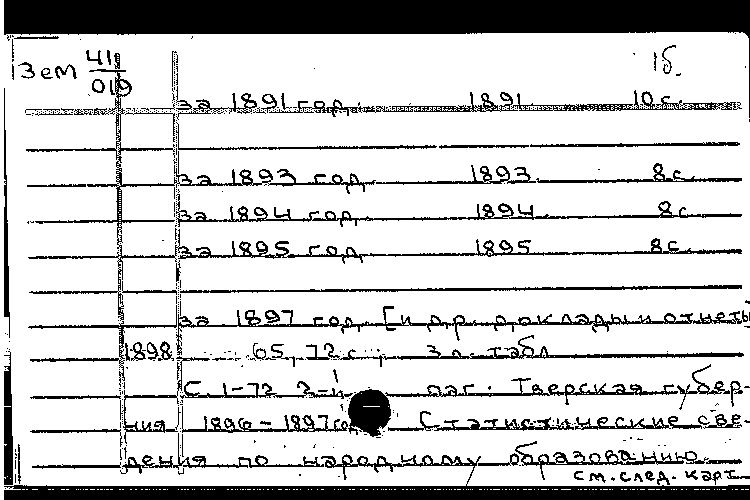 Зем 41/019 1б.
за 1891 год. 1891. 10 с.
за 1893 год. 1893. 8 с.
за 1894 год. 1894. 8 с.
за 1895 год. 1895 8 с.
за 1897 год. [и др. доклады и отчеты
1898 65, 72 с.; 3 л. табл.
С. 1-72 2-й паг. Тверская губер-
ния 1896-1897 год Статистические све-
дения по народному образованию.
см. след. карт